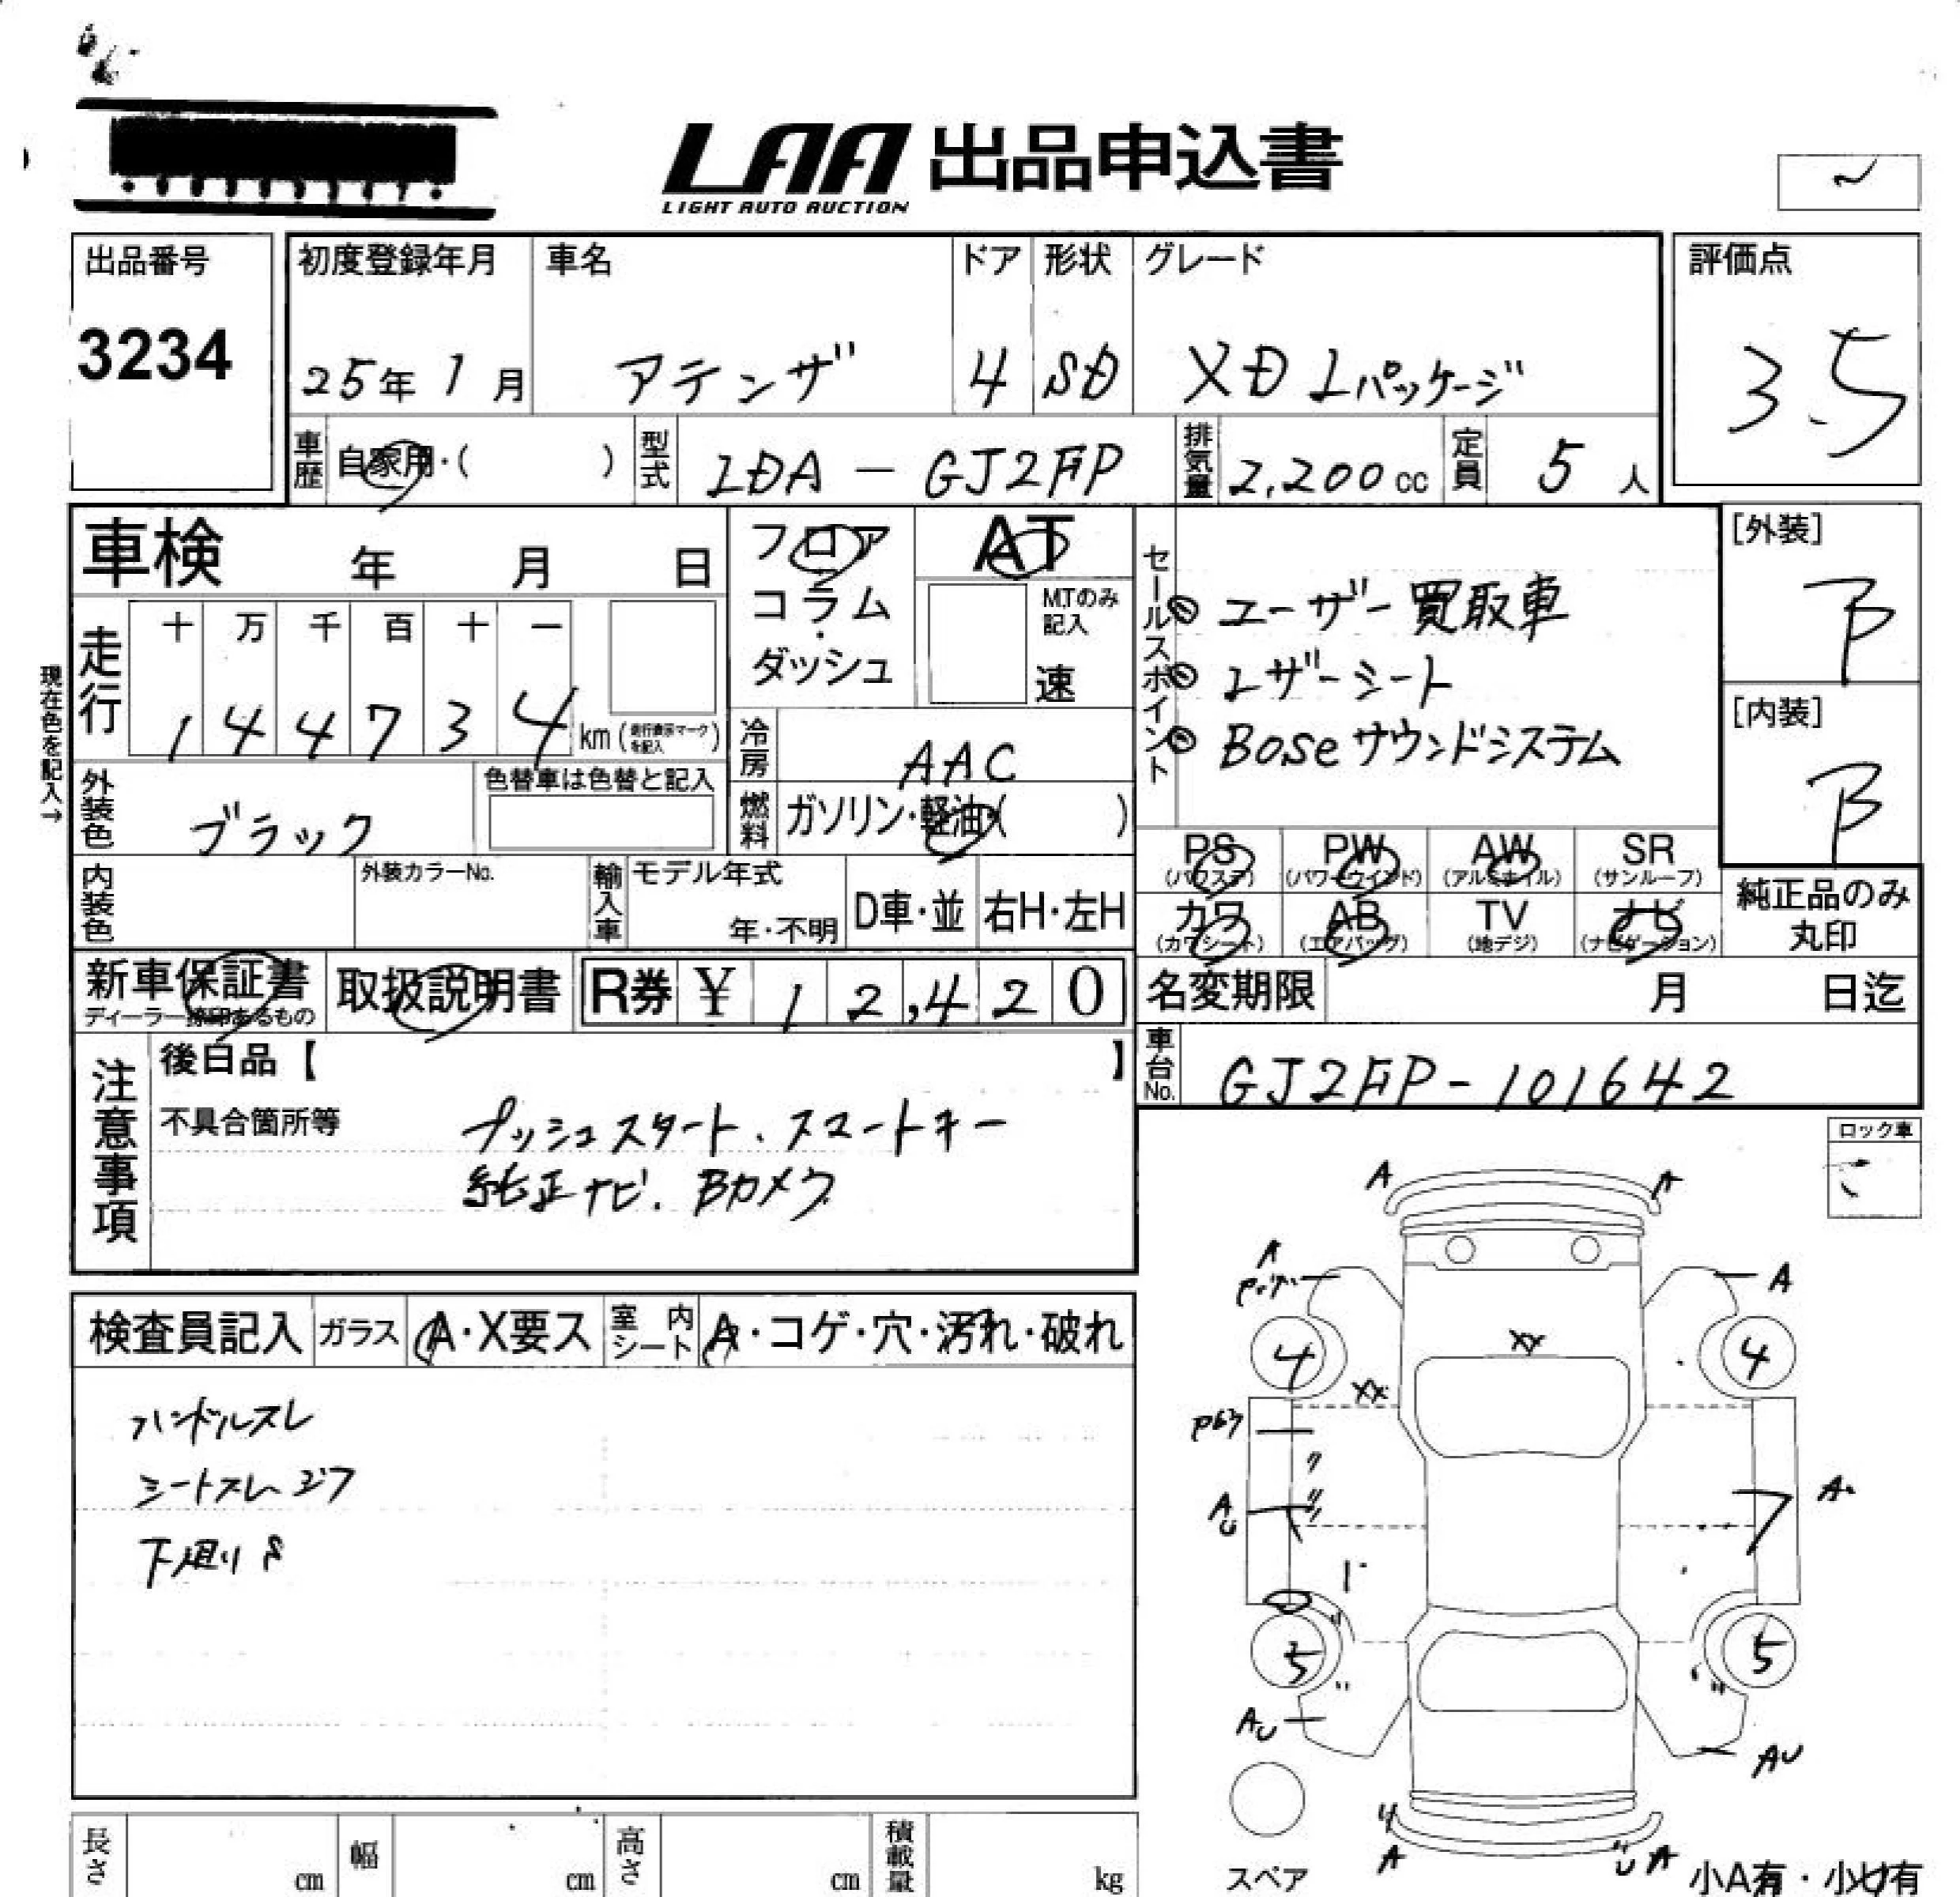 LAA 出品申込書
LIGHT AUTO AUCTION
出品番号
3234
初度登録年月 車名 ドア 形状 グレード
25年 1月 アテンザ 4 SD XD Lパッケージ
評価点
3.5
車歴 自家用・( ) 型式 LDA-GJ2FP 排気量 2,200cc 定員 5人
車検 年 月 日
フロア
コラム
・
ダッシュ
AT
MTのみ記入
速
走行 十 万 千 百 十 一
1 4 4 7 3 4 km (走行表示マークを記入)
現在色を記入→
冷房 AAC
燃料 ガソリン・軽油・( )
外装色 ブラック
色替車は色替と記入
内装色
外装カラーNo.
輸入車 モデル年式
年・不明 D車・並 右H・左H
セールスポイント
ユーザー買取車
レザーシート
Boseサウンドシステム
[外装]
B
[内装]
B
PS PW AW SR
(パワステ) (パワーウインド) (アルミホイル) (サンルーフ)
カワ AB TV ナビ
(カワシート) (エアバッグ) (地デジ) (ナビゲーション)
純正品のみ
丸印
新車保証書
ディーラー捺印あるもの
取扱説明書
R券 ¥ 1 2,4 2 0
名変期限 月 日迄
車台No. GJ2FP-101642
注意事項
後日品【 】
不具合箇所等
プッシュスタート、スマートキー
純正ナビ、Bカメラ
検査員記入 ガラス A・X要ス 室内シート A・コゲ・穴・汚れ・破れ
ハンドルスレ
シートスレ、シワ
下廻りS
ロック車
A A
A
A
XX
4 4
XX
AU
A
5 5
AU
AU
A
A
スペア
小A有・小U有
長さ cm 幅 cm 高さ cm 積載量 kg